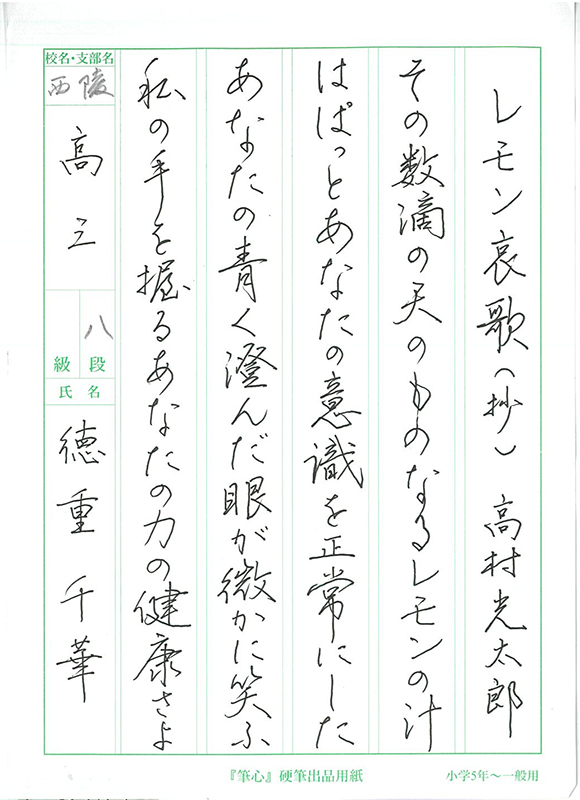 レモン哀歌(抄) 高村光太郎
その数滴の天のものなるレモンの汁
はぱっとあなたの意識を正常にした
あなたの青く澄んだ眼が微かに笑ふ
私の手を握るあなたの力の健康さよ
校名・支部名
西陵
高三
八段
級
氏名
德重千華
『筆心』硬筆出品用紙
小学5年〜一般用